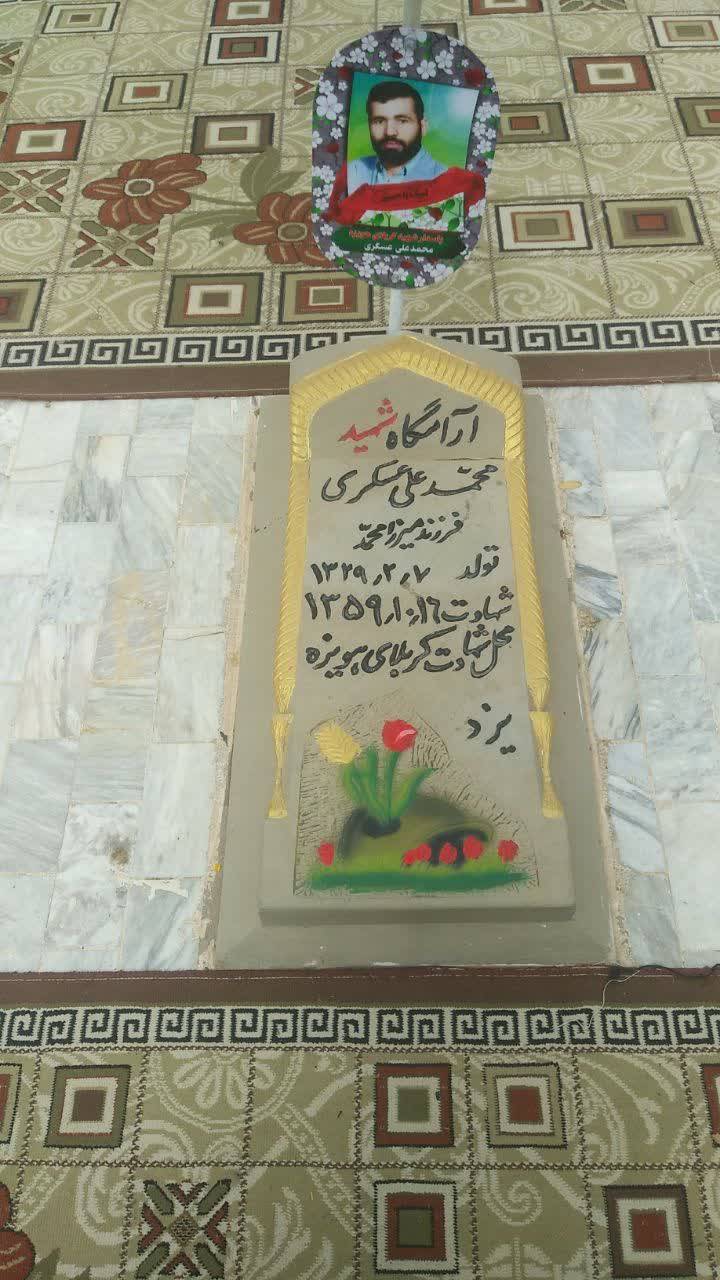 لبیک یا حسین
پاسدار شهید کربلای هویزه
محمدعلی عسگری
آرامگاه شهید
محمّد علی عسکری
فرزند میرزا محمّد
تولد ۱۳۲۹٫۲٫۷
شهادت ۱۳۵۹٫۱۰٫۱۶
محل شهادت کربلای هویزه
یزد